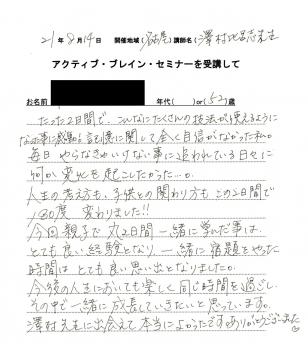 21年8月14日 開催地域(名古屋)講師名(澤村比呂志先生)
アクティブ・ブレイン・セミナーを受講して
お名前 年代( )or(52)歳
たった2日間で、こんなにたくさんの技法が使えるように
なった事に感動。記憶に関して全く自信がなかった私。
毎日やらなきゃいけない事に追われている日々に
何か変化を起こしたかった…。
人生の考え方も、子供との関わり方もこの2日間で
180度変わりました!!
今回親子で丸2日間一緒に学んだ事は、
とても良い経験となり、一緒に宿題をやった
時間はとても良い思い出となりました。
今後の人生においても楽しく同じ時間を過ごし、
その中で一緒に成長していきたいと思っています。
澤村先生に出会えて本当によかったです。ありがとうございました